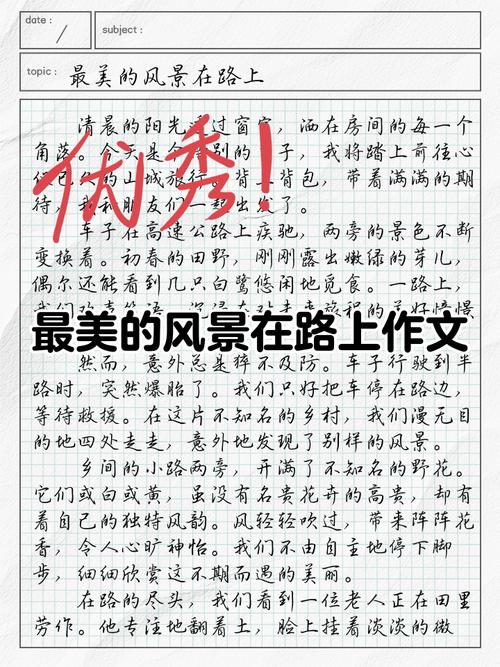 date :
subject :
topic : 最美的风景在路上
清晨的阳光透过窗帘，洒在房间的每一个
角落。今天是个特别的日子，我将踏上前往心
仪已久的山城旅行。背上背包，带着满满的期
待，我和朋友们一起出发了。
优秀！
车子在高速公路上疾驰，两旁的景色不断
变换着。初春的田野，刚刚露出嫩绿的芽儿，
偶尔还能看到几只白鹭悠闲地觅食。一路上，
我们欢声笑语，沉浸在对未来旅程的美好憧憬
最美的风景在路上作文
然而，意外总是猝不及防。车子行驶到半
路时，突然爆胎了。我们只好把车停在路边，
等待救援。在这片不知名的乡村，我们漫无目
的地四处走走，意外地发现了别样的风景。
乡间的小路两旁，开满了不知名的野花。
它们或白或黄，虽没有名贵花卉的高贵，却有
着自己的独特风韵。风轻轻吹过，带来阵阵花
香，令人心旷神怡。我们不由自主地停下脚
步，细细欣赏这不期而遇的美丽。
在路的尽头，我们看到一位老人正在田里
劳作。他专注地翻着土，脸上挂着淡淡的微